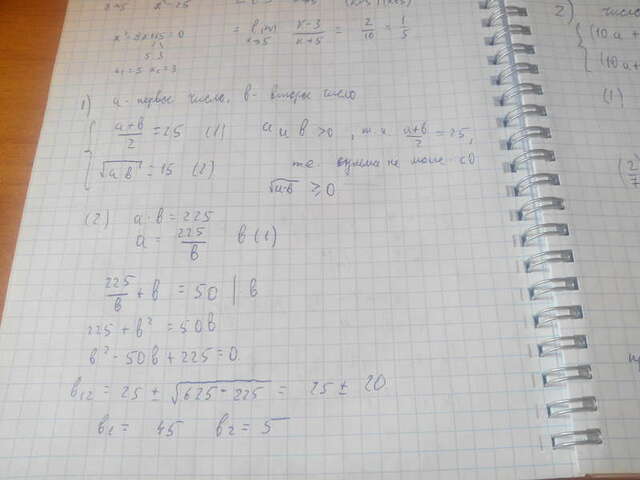 x→5 x² - 25
x² - 8x + 15 = 0
5 3
x₁ = 5 x₂ = 3
= lim x→5 x-3 / x+5 = 2/10 = 1/5
1) a - первое число, b - второе число
{ a+b / 2 = 25 (1) a и b > 0, т.к. a+b / 2 = 25,
√a b = 15 (2) то сумма не може < 0
√a·b ≥ 0
(2) a·b = 225
a = 225 / b в (1)
225 / b + b = 50 | b
225 + b² = 50b
b² - 50b + 225 = 0
b₁₂ = 25 ± √625 - 225 = 25 ± 20
b₁ = 45 b₂ = 5
2) число
{ (10a +
(10a+
(1)
(2/7